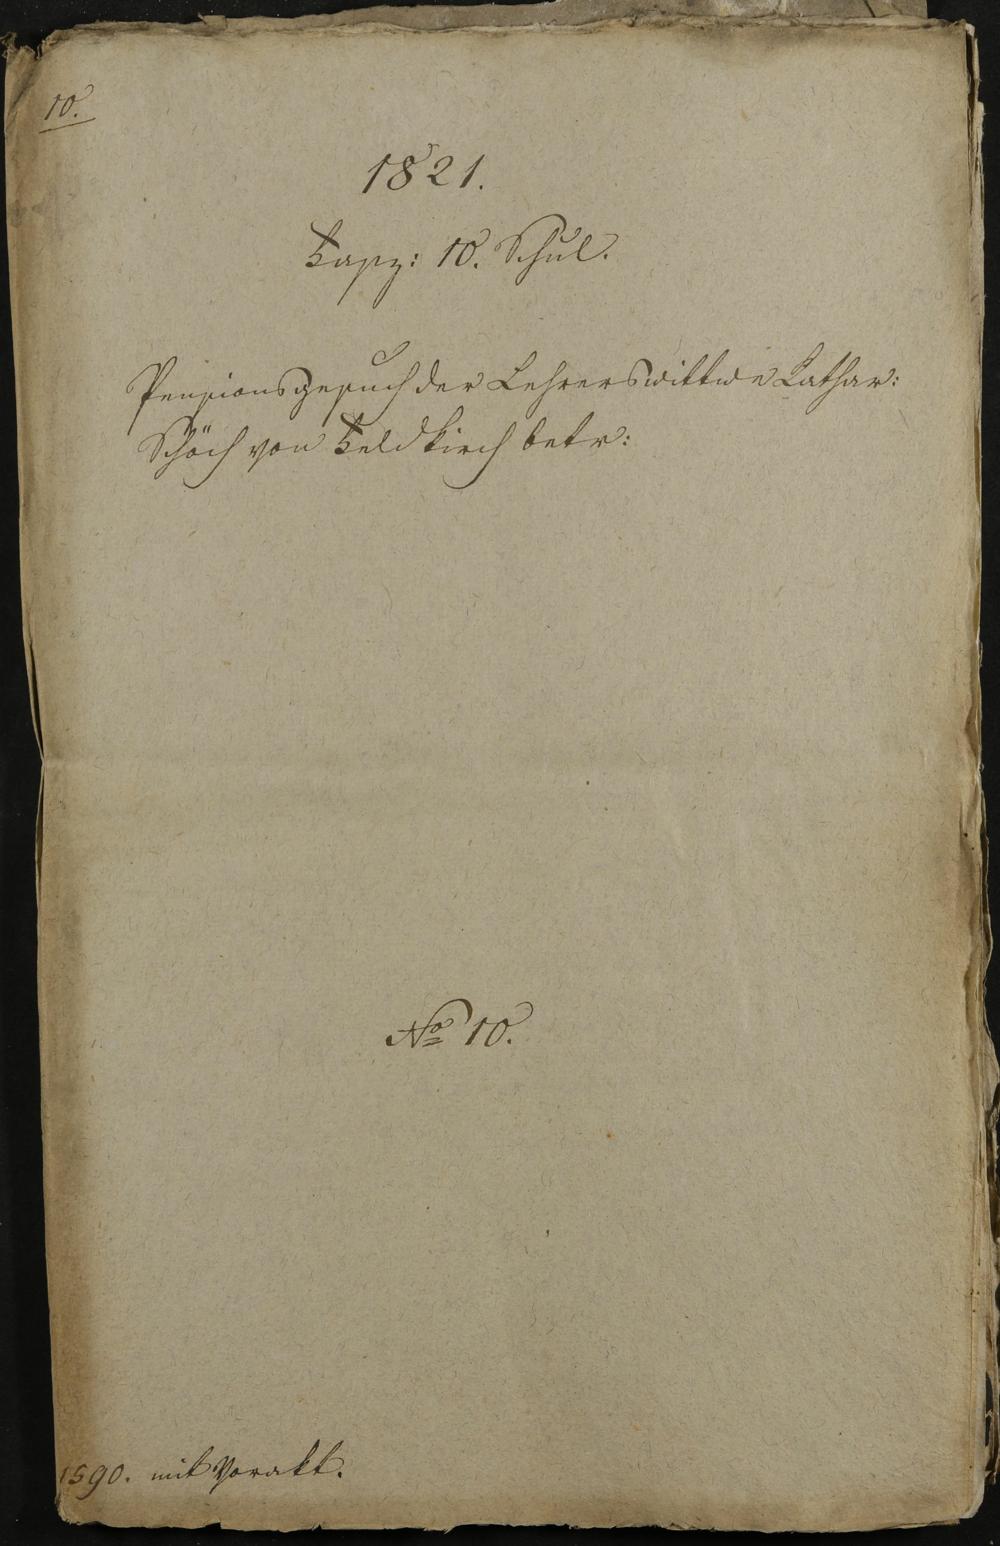 10.
1821.
Fasz: 10. Schul.
Pensionsgesuch der Lehrerswittwe Kathar:
Schöch von Feldkirch betr:
No 10.
1590. mit Vorakt.